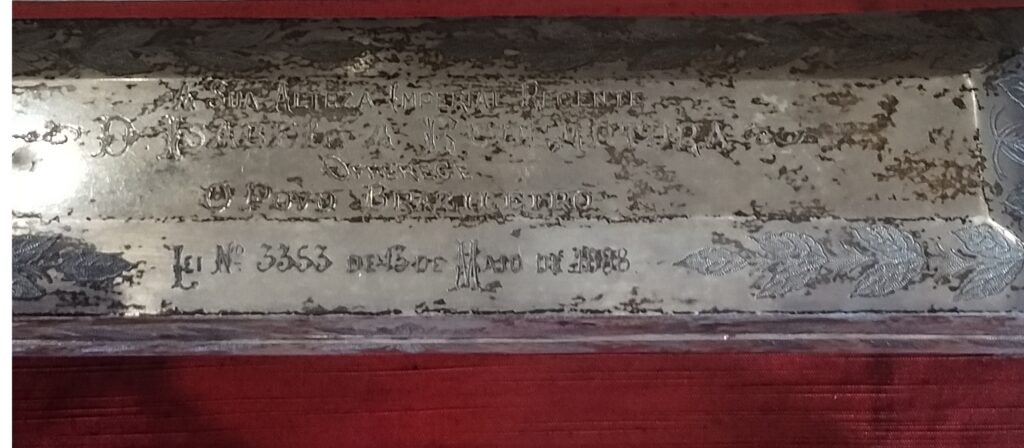 A Sua Alteza Imperial Regente
D. Isabel A Redemptora
Offerece
O Povo Brazileiro
Lei Nº 3353 de 13 de Maio de 1888